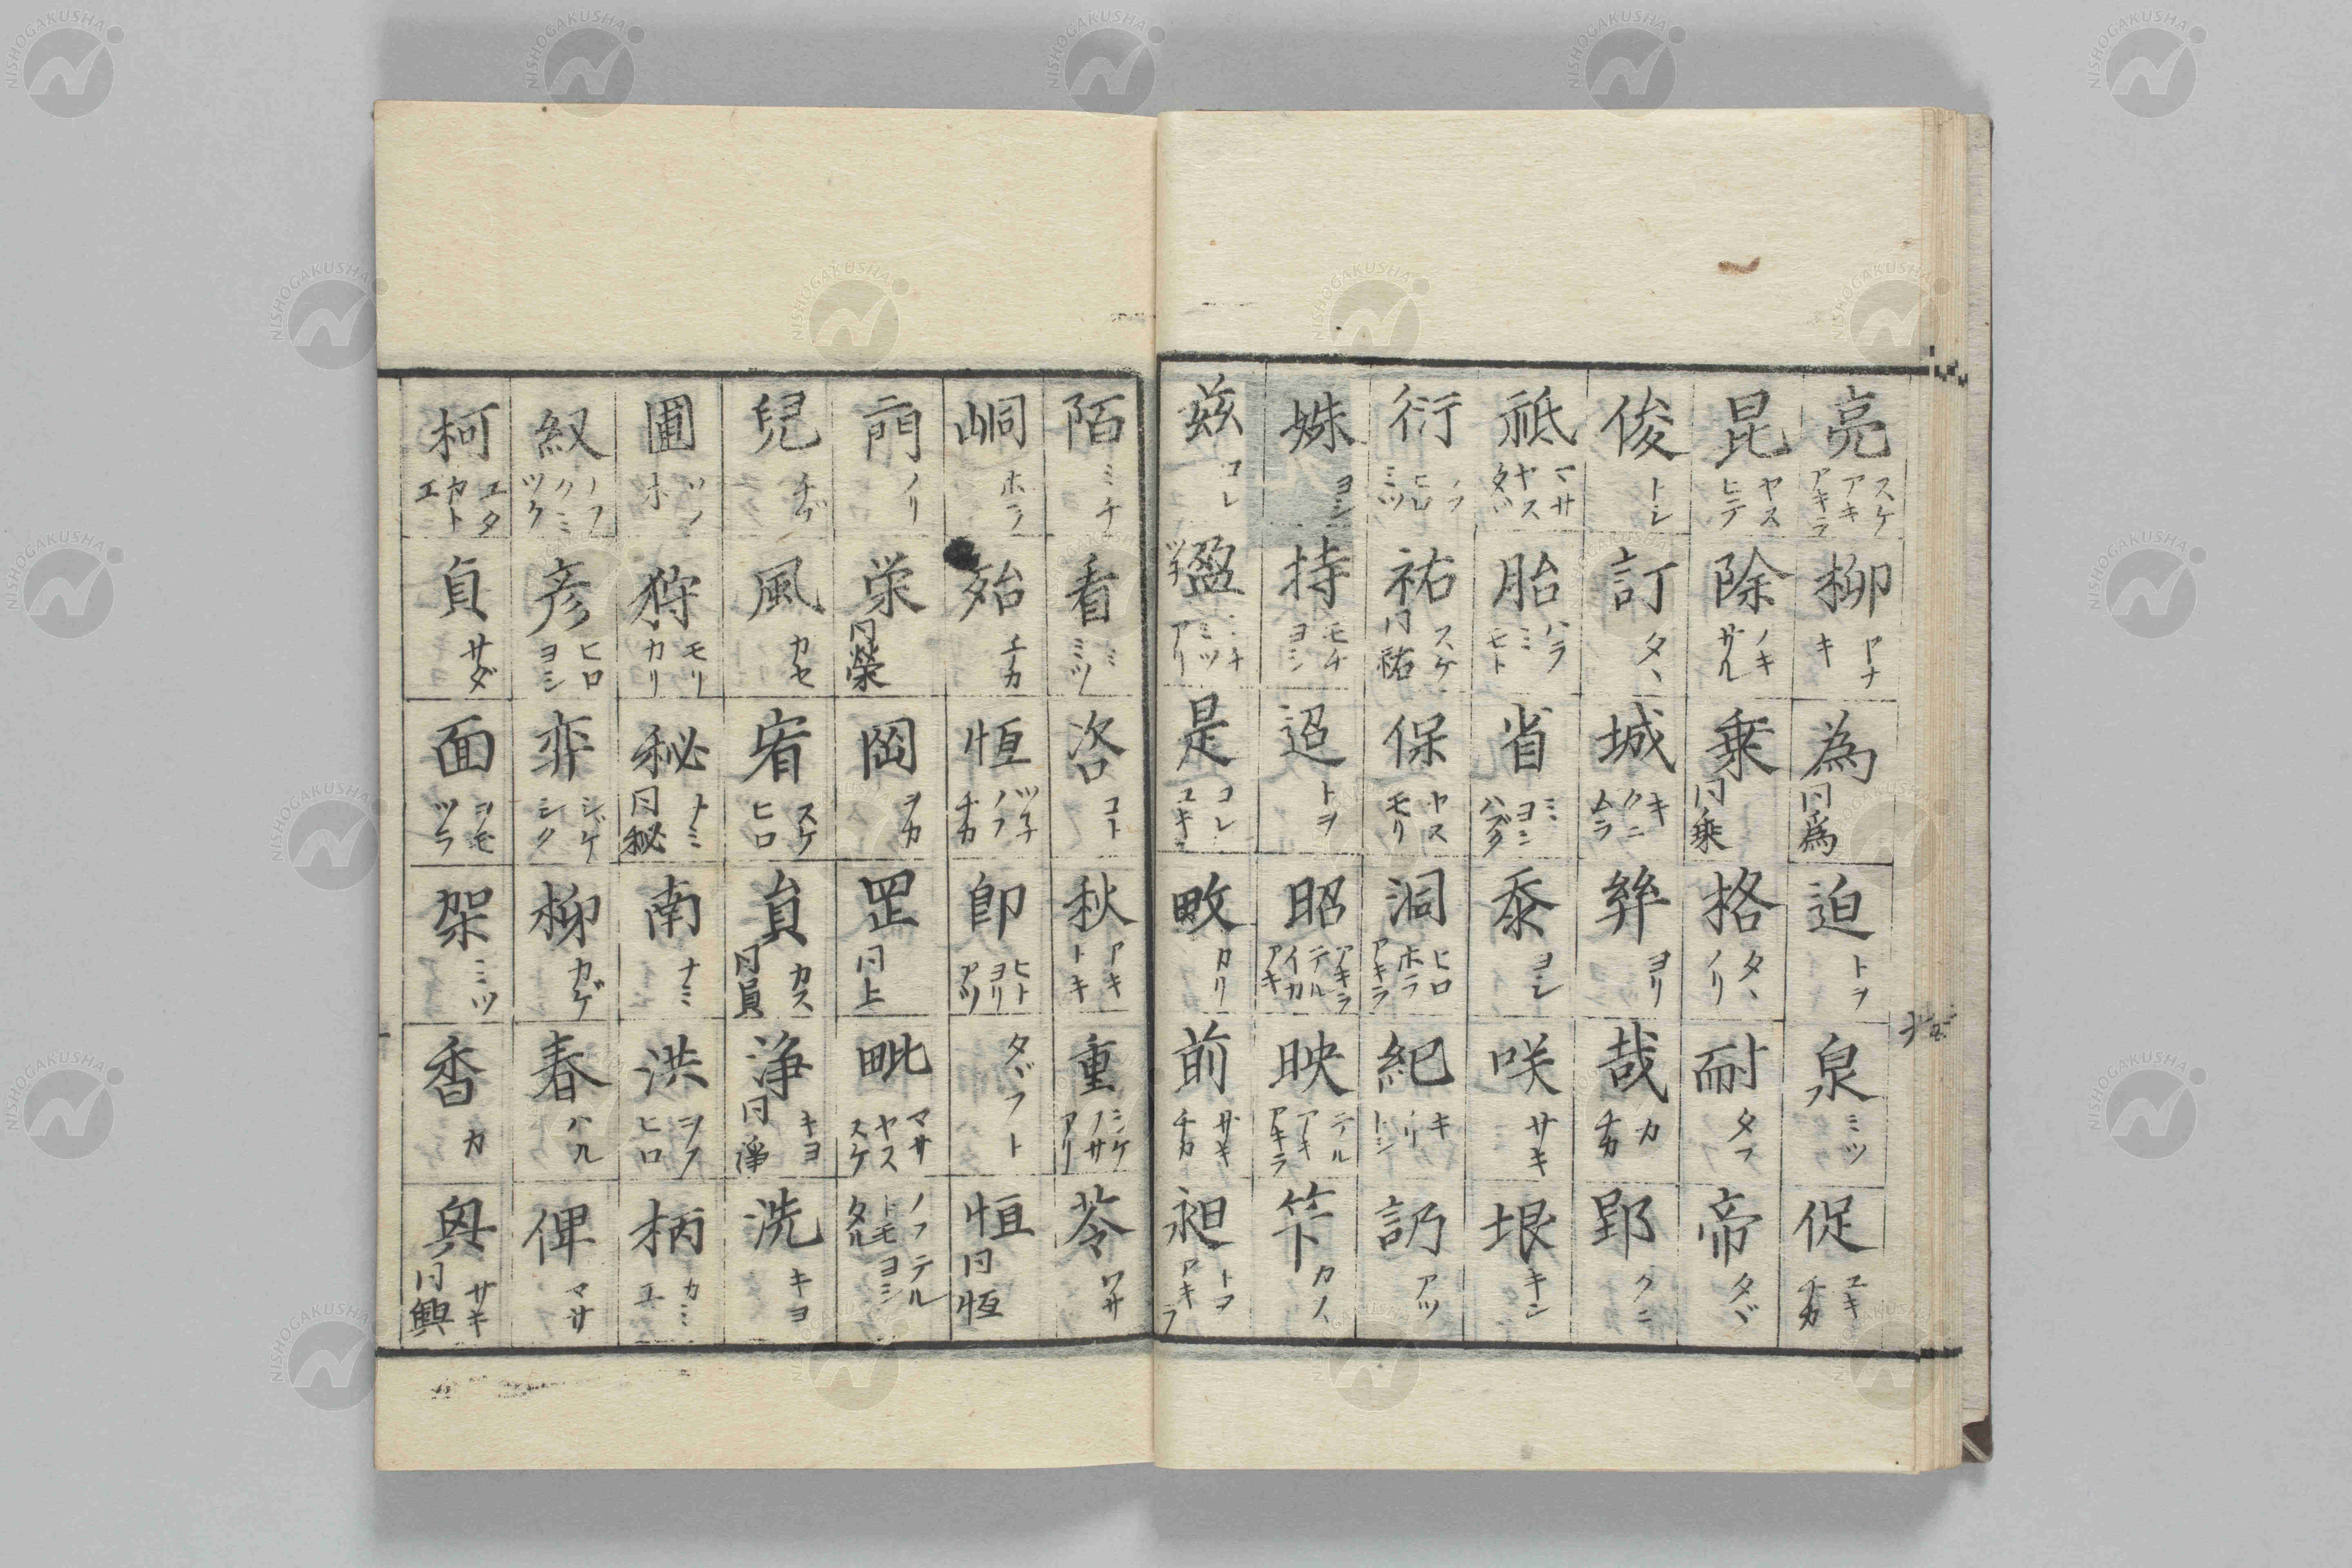 亮 スケ アキ アキラ
柳 ヤナ キ
為 同為
迫 トヲ
泉 ミツ
促 ユキ チカ
昆 ヤス ヒデ
除 ノキ サル
乗 同乘
格 タヽ ノリ
耐 タフ
帝 タヾ
俊 トシ
訂 タヽ
城 キ クニ ムラ
ヨリ
哉 カ チカ
郢 クニ
祗 マサ ヤス タヾ
胎 ハラ ミ モト
省 ミ ヨシ ハブク
黍 ヨシ
咲 サキ
垠 キシ
衍 ノフ ヒロ ミツ
祐 スケ 同祐
保 ヤス モリ
洞 ヒロ ホラ アキラ
紀 キ ノリ トシ
アツ
姝 ヨシ
持 モチ ヨシ
迢 トヲ
昭 アキラ テル イカ アキ
映 テル アキ アキラ
カノ
茲 コレ
盈 ミチ ミツ アリ
是 コレ ユキ
畋 カリ
前 サキ チカ
昶 トヲ アキラ
陌 ミチ
看 ミ ミツ
咨 コト
秋 アキ トキ
重 シケ ノサ アリ
苓 ワサ
峒 ホラ
殆 チカ
恒 ツネ ノフ チカ
卽 ヒト ヨリ アツ
タヾフト
恒 同恆
ノリ
栄 同榮
岡 ヲカ
罡 同上
毗 マサ ヤス スケ
ノフ テル トモ ヨシ タル
兒 チゴ
風 カセ
宥 スケ ヒロ
貟 カス 同員
浄 キヨ 同淨
洗 キヨ
圃 ツノ ホ
狩 モリ カリ
秘 ナミ 同祕
南 ナミ
洪 ヲフ ヒロ
柄 カミ エ
ノフ クミ ツク
彦 ヒロ ヨシ
シゲ シク
柳 カゲ
春 ハル
俾 マサ
柯 エタ カト エ
貞 サダ
面 ヲモ ツラ
架 ミツ
香 カ
サキ 同興